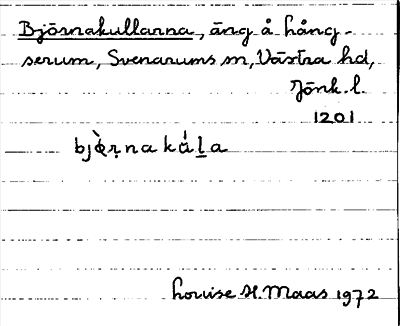 Björnakullarna, äng å hång-
serum, Svenarums sn, Västra hd,
Jönk. l.
1201
bjὲṛnakáḻa
Louise H. Maas 1972